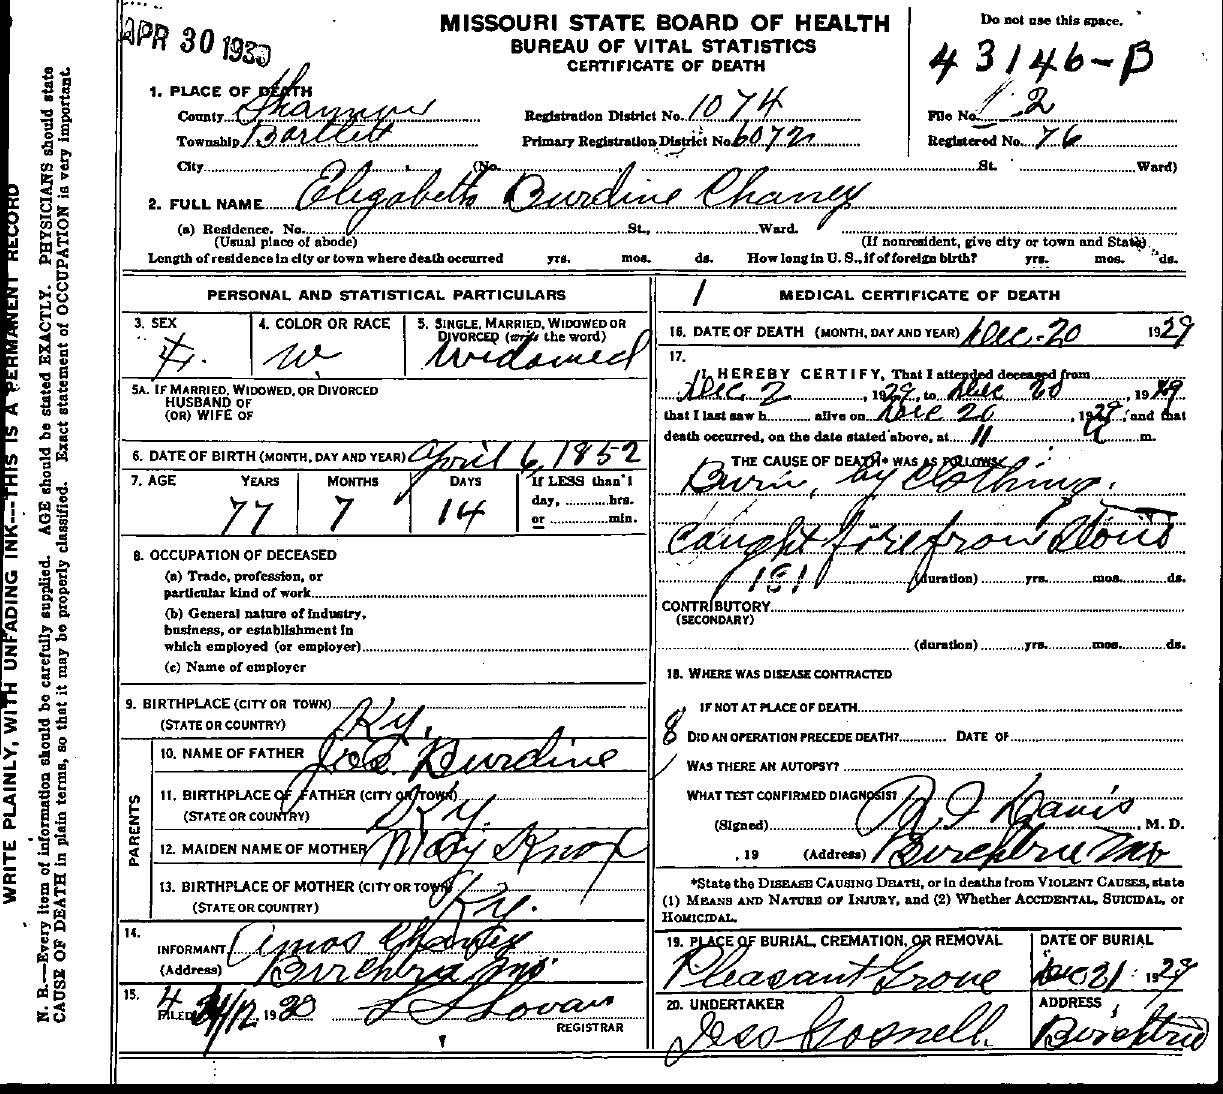 APR 30 1930
MISSOURI STATE BOARD OF HEALTH
BUREAU OF VITAL STATISTICS
CERTIFICATE OF DEATH
Do not use this space.
43146-B
1. PLACE OF DEATH
County Shannon Registration District No. 1074 File No. 2
Township Bartlett Primary Registration District No. 6072 Registered No. 76
City (No. St. Ward)
2. FULL NAME Elizabeth Burdine Chaney
(a) Residence. No. St., Ward.
(Usual place of abode) (If nonresident, give city or town and State)
Length of residence in city or town where death occurred yrs. mos. ds. How long in U. S., if of foreign birth? yrs. mos. ds.
PERSONAL AND STATISTICAL PARTICULARS
3. SEX 4. COLOR OR RACE 5. SINGLE, MARRIED, WIDOWED OR
DIVORCED (write the word)
F. W. Widowed
5A. IF MARRIED, WIDOWED, OR DIVORCED
HUSBAND OF
(OR) WIFE OF
6. DATE OF BIRTH (MONTH, DAY AND YEAR) April 6, 1852
7. AGE YEARS MONTHS DAYS If LESS than 1
day, hrs.
or min.
77 7 14
8. OCCUPATION OF DECEASED
(a) Trade, profession, or
particular kind of work
(b) General nature of industry,
business, or establishment in
which employed (or employer)
(c) Name of employer
9. BIRTHPLACE (CITY OR TOWN)
(STATE OR COUNTRY) Ky.
PARENTS
10. NAME OF FATHER Joe Burdine
11. BIRTHPLACE OF FATHER (CITY OR TOWN)
(STATE OR COUNTRY) Ky.
12. MAIDEN NAME OF MOTHER Mary Knox
13. BIRTHPLACE OF MOTHER (CITY OR TOWN)
(STATE OR COUNTRY) Ky.
14.
INFORMANT Amos Chaney
(Address) Birchtree Mo.
15.
FILED 4/12, 1930
REGISTRAR
1 MEDICAL CERTIFICATE OF DEATH
16. DATE OF DEATH (MONTH, DAY AND YEAR) Dec-20 1929
17.
I HEREBY CERTIFY, That I attended deceased from
Dec 2, 1929, to Dec 20, 1929
that I last saw h alive on Dec 20, 1929, and that
death occurred, on the date stated above, at 11 a m.
THE CAUSE OF DEATH* WAS AS FOLLOWS:
Burn, by clothing
Caught fire from Stove
181 (duration) yrs. mos. ds.
CONTRIBUTORY
(SECONDARY)
(duration) yrs. mos. ds.
18. WHERE WAS DISEASE CONTRACTED
IF NOT AT PLACE OF DEATH
8 DID AN OPERATION PRECEDE DEATH? DATE OF
WAS THERE AN AUTOPSY?
WHAT TEST CONFIRMED DIAGNOSIS?
(Signed) Davis, M. D.
, 19 (Address) Birchtree Mo
*State the DISEASE CAUSING DEATH, or in deaths from VIOLENT CAUSES, state
(1) MEANS AND NATURE OF INJURY, and (2) Whether ACCIDENTAL, SUICIDAL, or
HOMICIDAL.
19. PLACE OF BURIAL, CREMATION, OR REMOVAL DATE OF BURIAL
Pleasant Grove Dec 21 1929
20. UNDERTAKER ADDRESS
Jess Gosnell. Birchtree
WRITE PLAINLY, WITH UNFADING INK---THIS IS A PERMANENT RECORD
N. B.—Every item of information should be carefully supplied. AGE should be stated EXACTLY. PHYSICIANS should state
CAUSE OF DEATH in plain terms, so that it may be properly classified. Exact statement of OCCUPATION is very important.